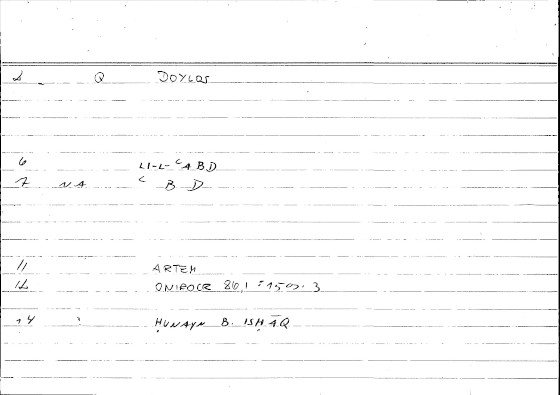 2 Q DOYLOS
6 LI-L-ᶜABD
7 NA ᶜBD
11 ARTEM
12 ONIROCR 86,1 :
14 ḤUNAYN B. ISḤĀQ